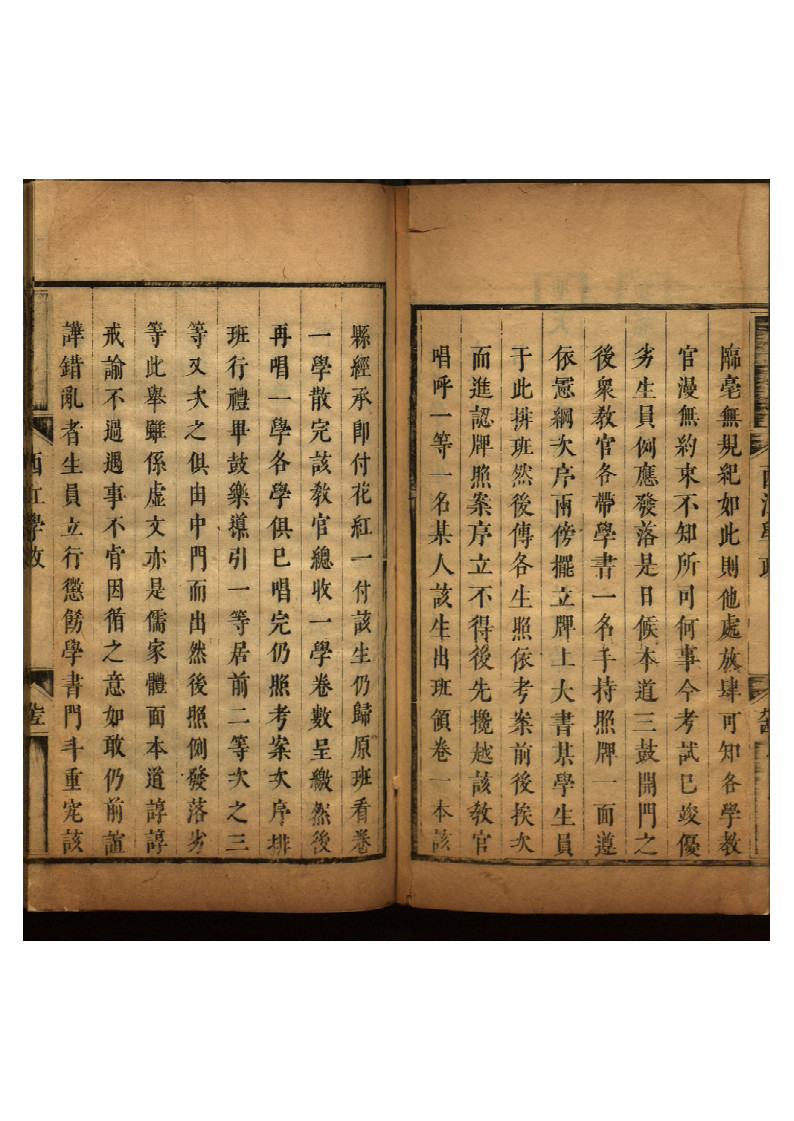 臨毫無規紀如此則他處放肆可知各學教
官漫無約束不知所司何事今考試已竣優
劣生員例應發落是日候本道三鼓開門之
後衆教官各帶學書一名手持照牌一面遵
依憲綱次序兩傍擺立牌上大書某學生員
于此排班然後傳各生照依考案前後挨次
而進認牌照案序立不得後先攙越該教官
唱呼一等一名某人該生出班領卷一本該
縣經承即付花紅一付該生仍歸原班看卷
一學散完該教官總收一學卷數呈繳然後
再唱一學各學俱已唱完仍照考案次序排
班行禮畢鼓樂導引一等居前二等次之三
等又次之俱由中門而出然後照例發落劣
等此舉雖係虛文亦是儒家體面本道諄諄
戒諭不過遇事不肯因循之意如敢仍前諠
譁錯亂者生員立行懲飭學書門斗重究該
西江學政